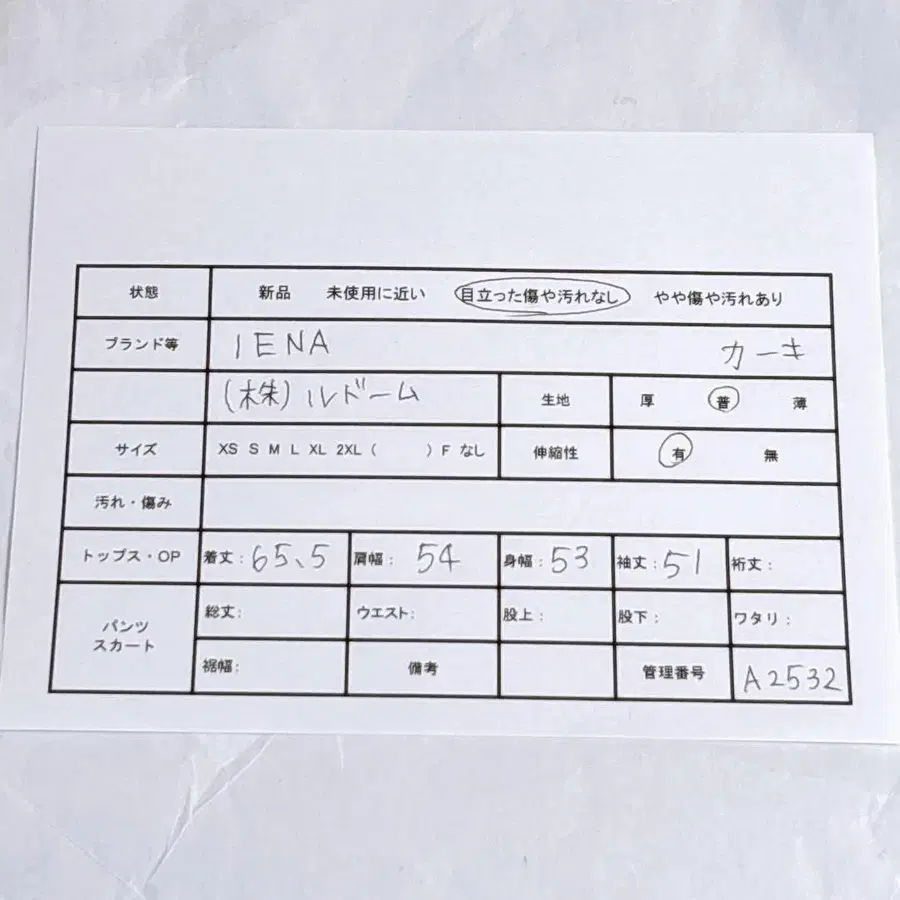 状態 新品 未使用に近い 目立った傷や汚れなし やや傷や汚れあり
ブランド等 IENA カーキ
(株)ルドーム 生地 厚 普 薄
サイズ XS S M L XL 2XL ( ) F なし 伸縮性 有 無
汚れ・傷み
トップス・OP 着丈: 65.5 肩幅: 54 身幅: 53 袖丈: 51 裄丈:
パンツ スカート 総丈: ウエスト: 股上: 股下: ワタリ:
裾幅: 備考 管理番号 A2532